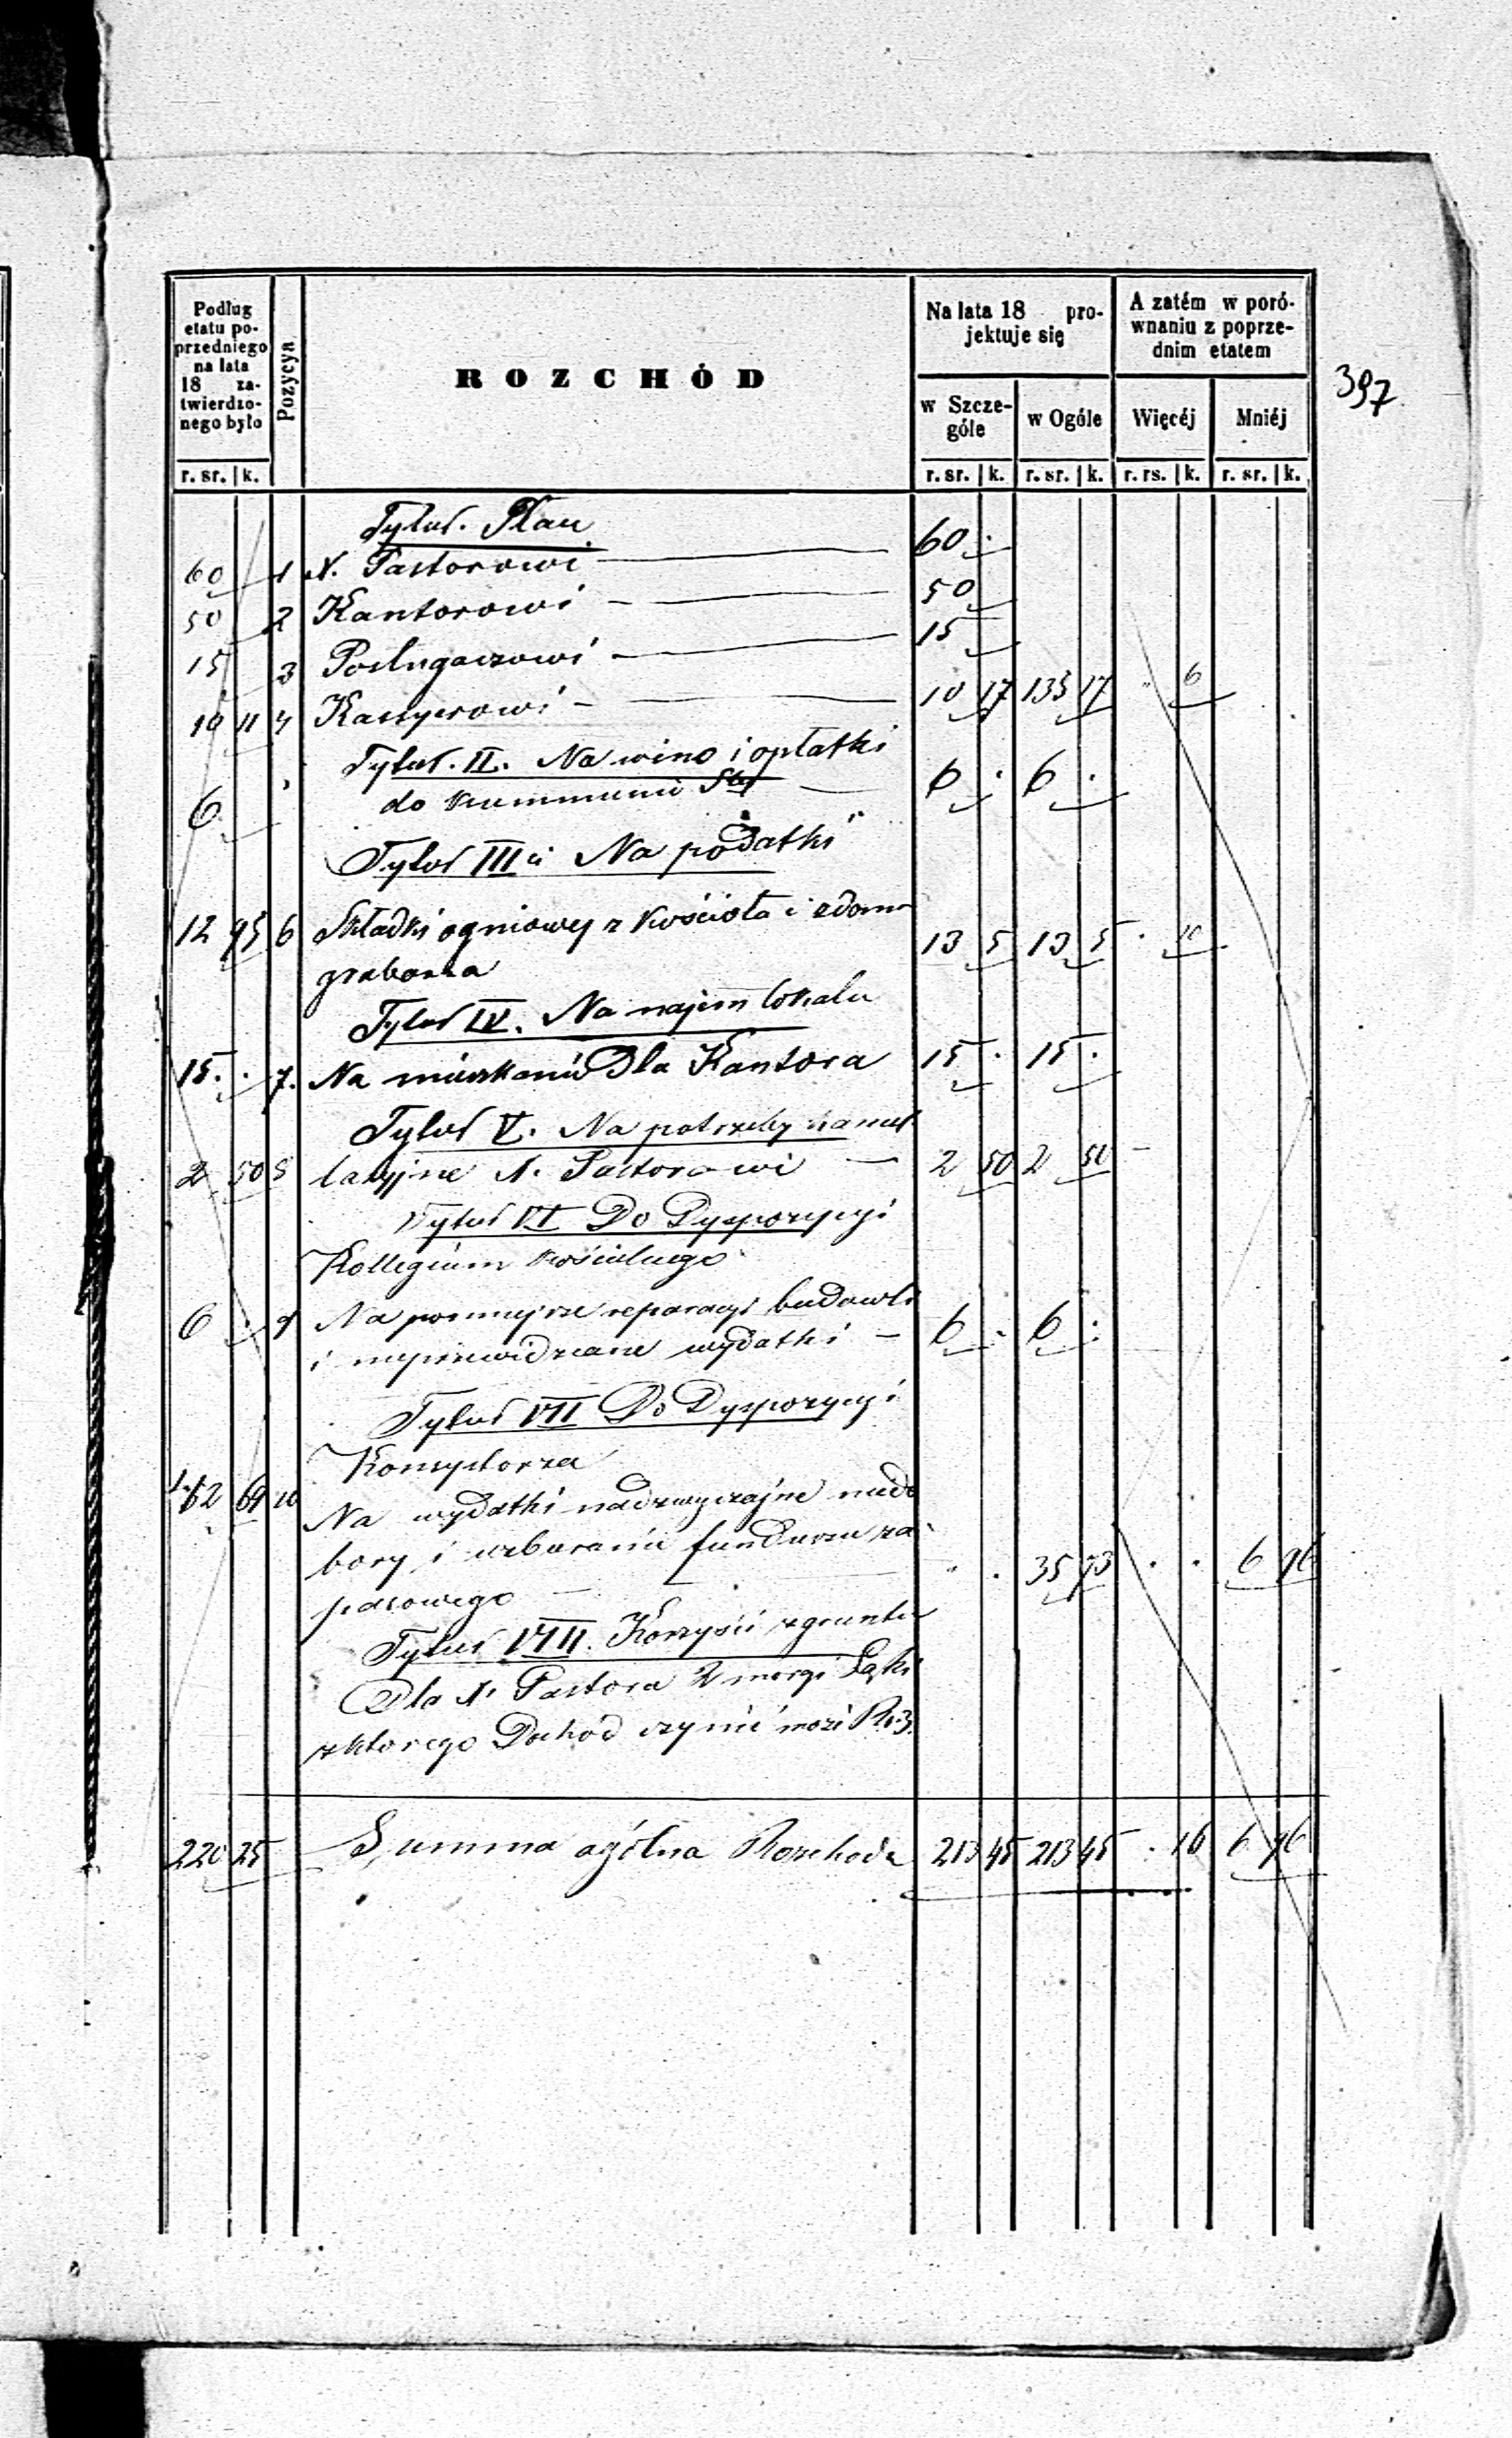 397
Podług etatu poprzedniego na lata 18 zatwierdzonego było
Pozycya
ROZCHÓD
Na lata 18 projektuje się
A zatém w porównaniu z poprzednim etatem
w Szczególe
w Ogóle
Więcéj
Mniéj
r. sr. k. r. sr. k. r. sr. k. r. rs. k. r. sr. k.
Tytuł. Płau
60 1 X. Pastorowi 60
50 2 Kantorowi 50
15 3 Posługaczowi 15
10 11 4 Kassyerowi 10 17 135 17 6
Tytuł. II. Na wino i opłatki
6 do kummunii Stej 6 6
Tytuł III Na podatki
12 95 6 Składki ogniowej z kościoła i z domu 13 5 13 5 10
grabarza
Tytuł IV. Na najem lokalu
15 7. Na mieszkanie Dla Kantora 15 15
Tytuł V. Na potrzeby kancel
2 50 8 laryjne X. Pastorowi 2 50 2 50
Tytuł VI Do Dyspozycyi
Kollegium kościelnego
6 9 Na pomniejsze reparacyi budowli 6 6
i nieprzewidziane wydatki
Tytuł VII Do Dyspozycyi
Konsystorza
42 69 10 Na wydatki nadzwyczajne niedo
bory i uzbieranie funduszu za
pasowego 35 73 6 96
Tytuł VIII. Korzyści z gruntu
Dla X. Pastora 2 morgi Łąki
z ktorego Dochód czynić może Rs. 3.
220 25 Summa ogólna Rozchodu 213 45 213 45 16 6 96